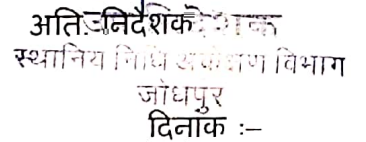 अति. निदेशक
स्थानिय निधि अंकेक्षण विभाग
जोधपुर
दिनांक :–